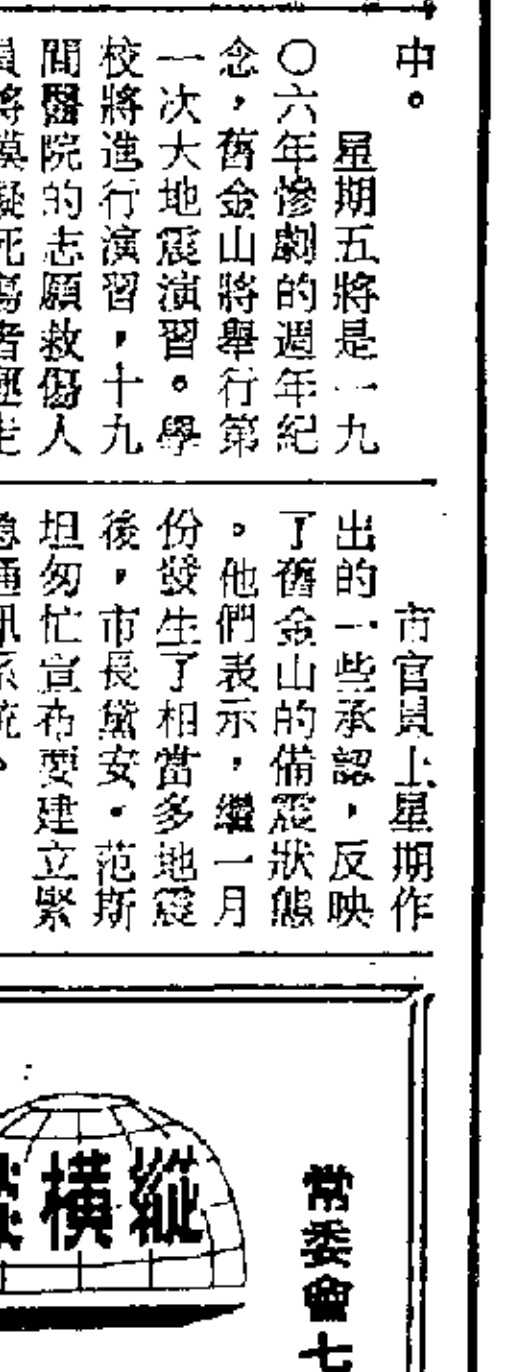 中。
星期五將是一九
〇六年慘劇的週年紀
念，舊金山將舉行第
一次大地震演習。學
校將進行演習，十九
間醫院的志願救傷人
員將模擬死傷者
市官員上星期作
出的一些承認，反映
了舊金山的備震狀態
。他們表示，繼一月
份發生了相當多地震
後，市長黛安·范斯
坦匆忙宣布要建立緊
急通訊系統、
常委會七
縱橫